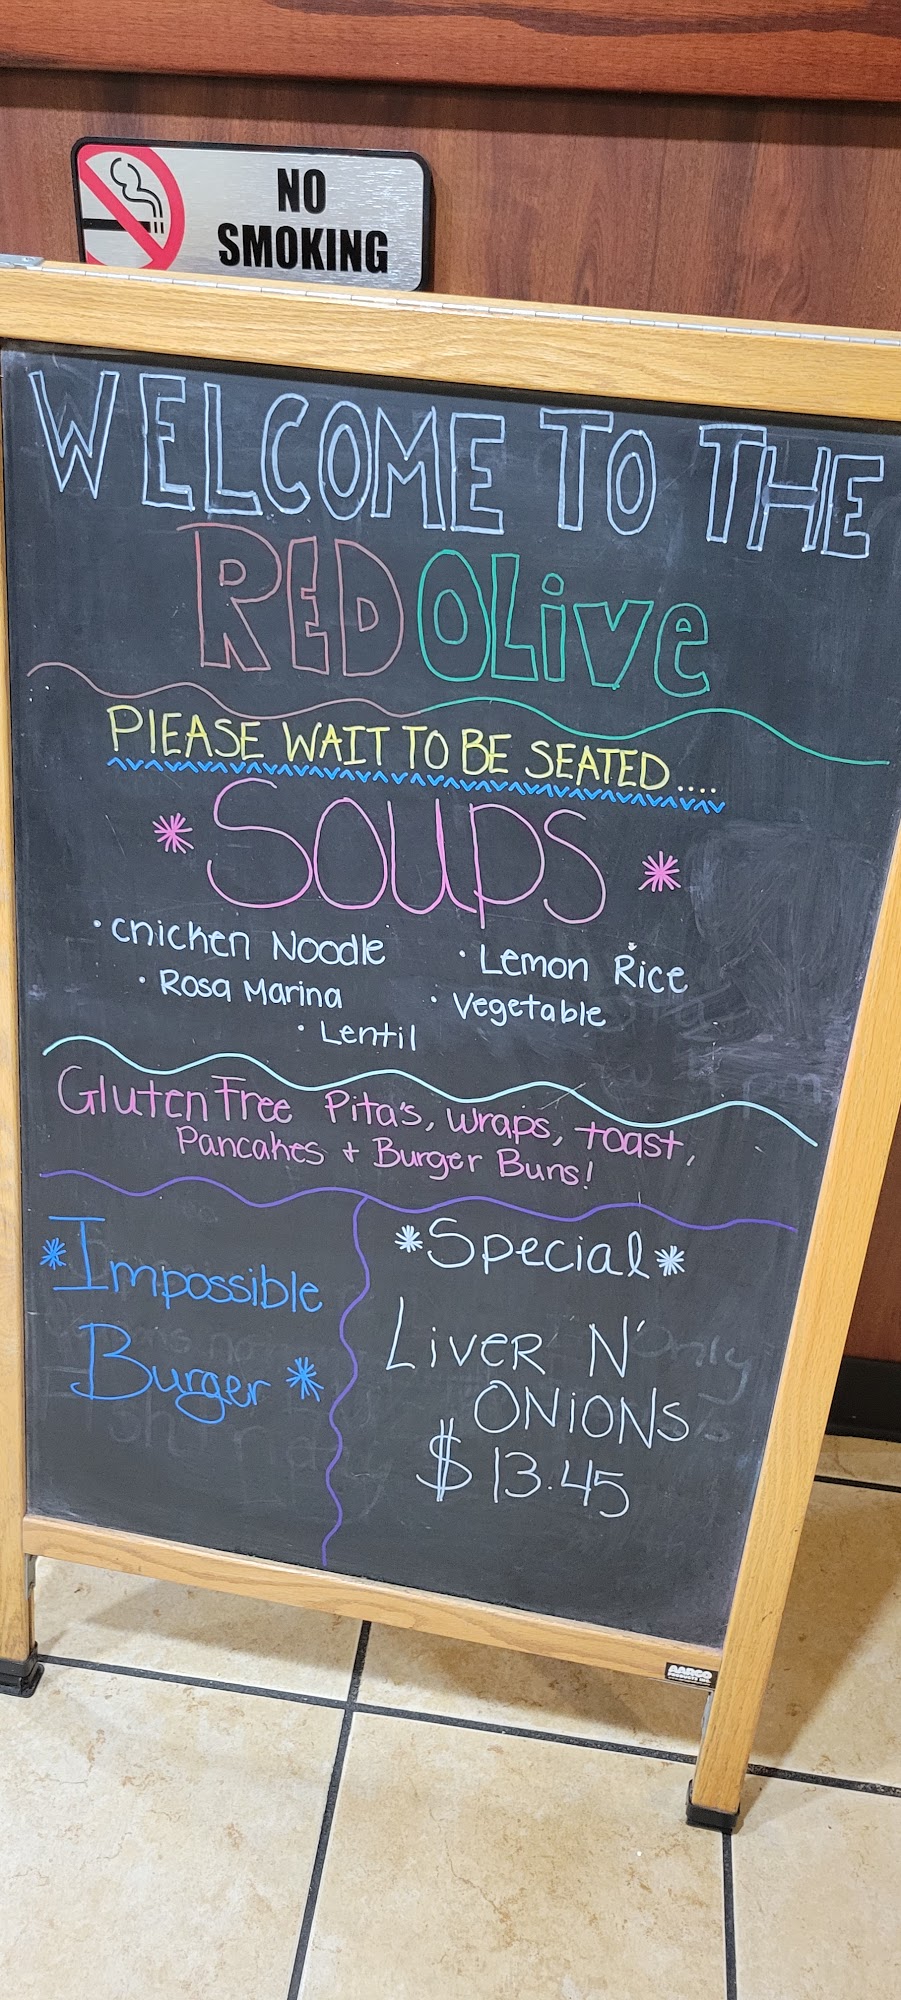 NO
SMOKING
WELCOME TO THE
RED OLive
PlEASE WAIT TO BE SEATED....
* SOUPS *
· cnicken Noodle
· Lemon Rice
· Rosa Marina
· Vegetable
· Lentil
Gluten Free Pita's, wraps, toast,
Pancakes + Burger Buns!
*Impossible
Burger*
*Special*
LiVER N'
ONiONS
$13.45
AARCO